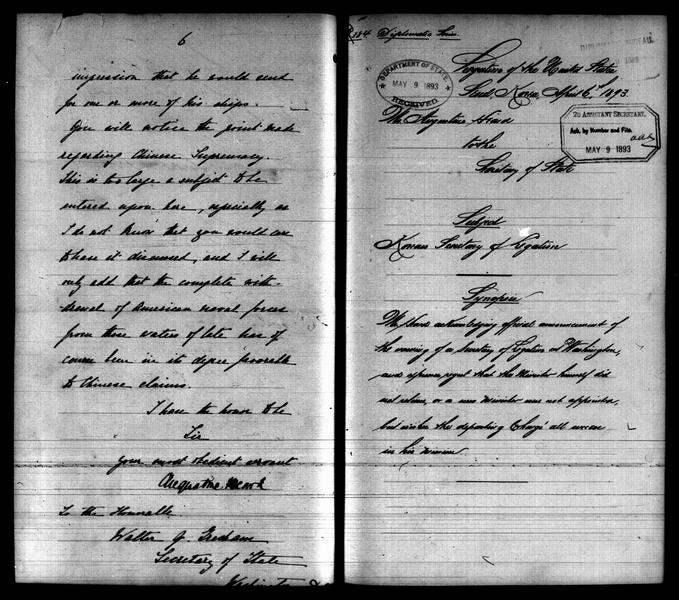 6
impression that he would send
for one or more of his ships.
You will notice the point made
regarding Chinese Supremacy.
This is too large a subject to be
entered upon here, especially as
I do not know that you would care
to have it discussed, and I will
only add that the complete with-
drawal of American naval forces
from these waters of late has of
course been in its degree favorable
to Chinese claims.
I have the honor to be
Sir
Your most obedient servant
Augustine Heard
To the Honorable
Walter Q. Gresham
Secretary of State
Washington
184 Diplomatic Series
Legation of the United States
Seoul, Korea, April 6, 1893.
DEPARTMENT OF STATE
MAY 9 1893
RECEIVED
2D ASSISTANT SECRETARY,
Ack. by Number and File.
MAY 9 1893
Mr Augustine Heard
to the
Secretary of State
Subject
Korean Secretary of Legation
Synopsis
Mr Heard acknowledging official announcement of
the naming of a Secretary of Legation at Washington,
and expresses regret that the Minister himself did
not return, or a new Minister was not appointed,
but wishes the departing Chargé all success
in his mission